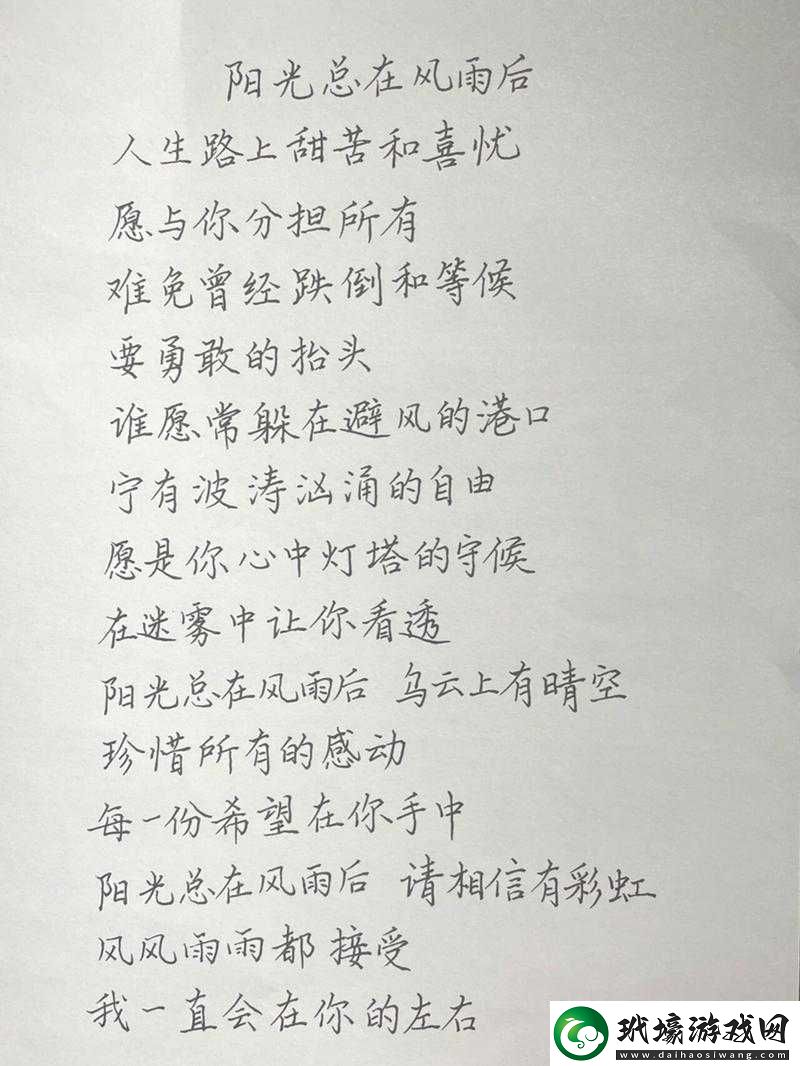 阳光总在风雨后
人生路上甜苦和喜忧
愿与你分担所有
难免曾经跌倒和等候
要勇敢的抬头
谁愿常躲在避风的港口
宁有波涛汹涌的自由
愿是你心中灯塔的守候
在迷雾中让你看透
阳光总在风雨后 乌云上有晴空
珍惜所有的感动
每一份希望在你手中
阳光总在风雨后 请相信有彩虹
风风雨雨都接受
我一直会在你的左右
玳壕游戏网
www.daihaosiwang.com